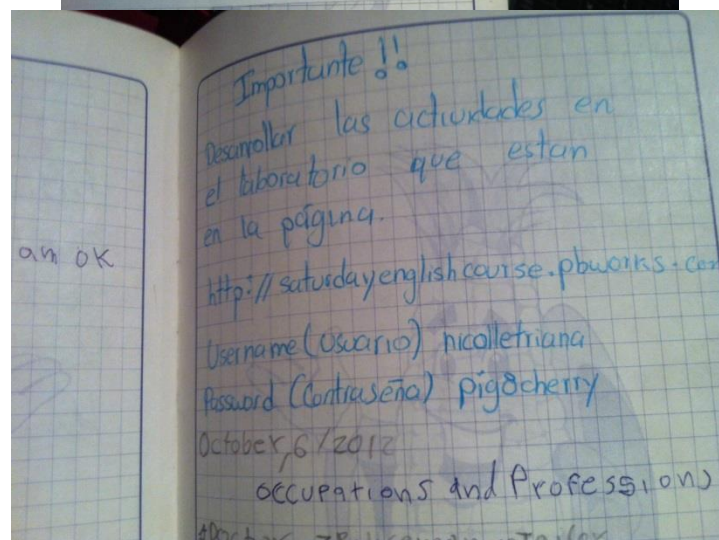 am ok
Importante !!
Desarrollar las actividades en
el laboratorio que estan
en la página.
http://saturdayenglishcourse.pbworks.co
Username (Usuario) nicolletriana
Password (Contraseña) pig8cherry
October, 6/2012
Occupations and Professions